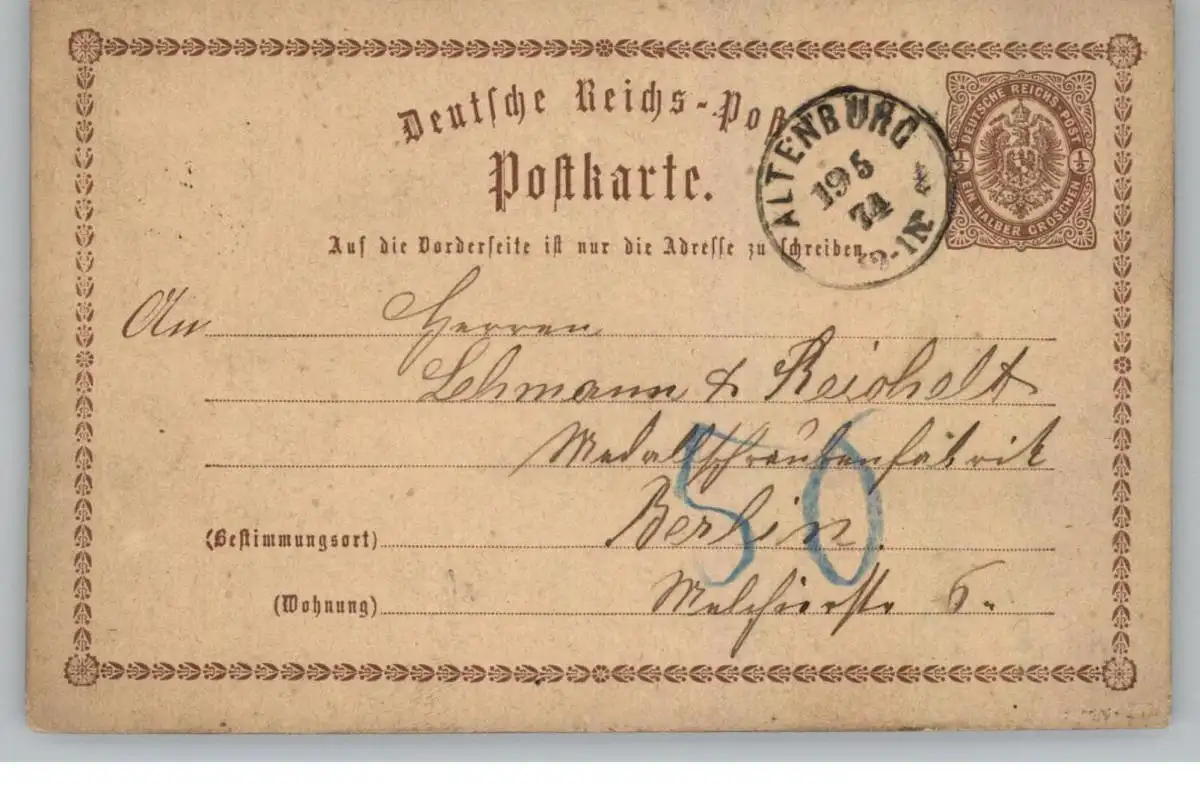 Deutsche Reichs-Post
Postkarte.
Auf die Vorderseite ist nur die Adresse zu schreiben.
ALTENBURG
19 5
74
DEUTSCHE REICHS-POST
½ ½
EIN HALBER GROSCHEN
An Herren
Lehmann & Reichelt
Metallschraubenfabrik
(Bestimmungsort) Berlin.
(Wohnung) Melchiorstr 6.
50